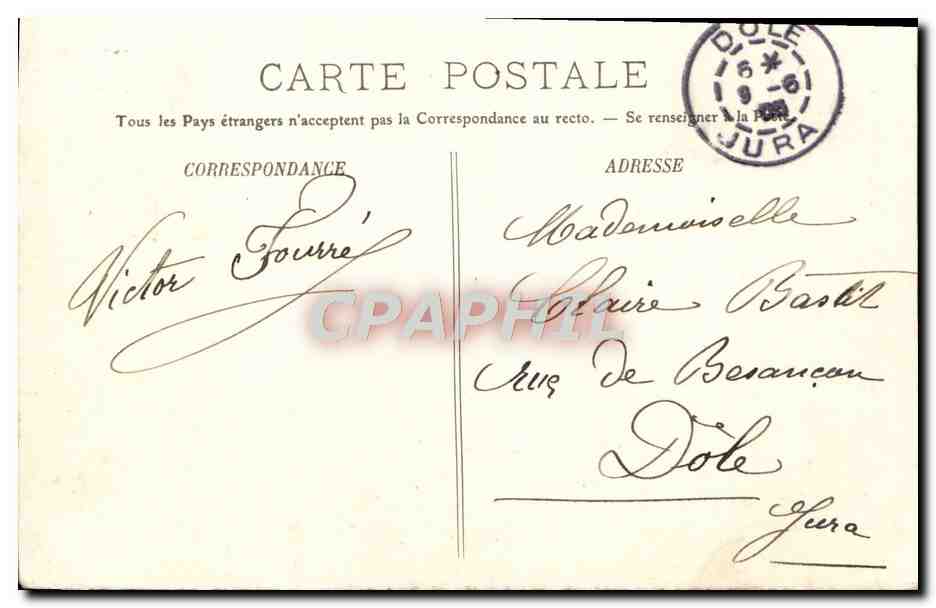 CARTE POSTALE
Tous les Pays étrangers n'acceptent pas la Correspondance au recto. — Se renseigner à la Poste.
DOLE
5 *
9 - 6
JURA
CORRESPONDANCE
Victor Fourré
ADRESSE
Mademoiselle
Claire Bastit
rue de Besançon
Dôle
Jura
CPAPHIL